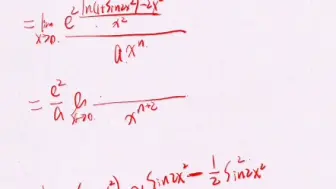 = lim x→0 e² (ln(1+sin2x²)-2x²)/x²
a xⁿ
= e²/a lim x→0
xⁿ⁺²
sin2x² - 1/2 sin²2x²